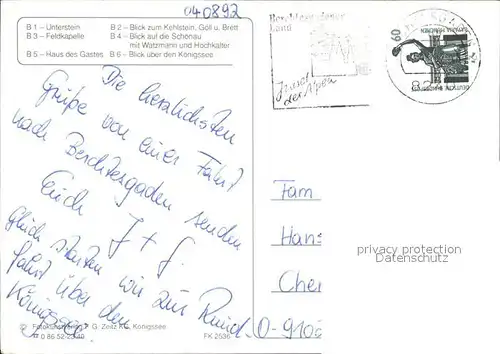 040892
B 1 – Unterstein B 2 – Blick zum Kehlstein, Göll u. Brett
B 3 – Feldkapelle B 4 – Blick auf die Schönau
mit Watzmann und Hochkalter
B 5 – Haus des Gastes B 6 – Blick über den Königssee
Berchtesgadener
Land
Insel
der Alpen
60
DEUTSCHE BUNDESPOST
Die herzlichsten
Grüße von einer Fahrt
nach Berchtesgaden senden
Euch J + G.
glück starten wir zur Rund
fahrt über den
Königssee.
Fam
Hans
Cher
O-9106
privacy protection
Datenschutz
G. Zeitz KG, Königssee
FK 2536